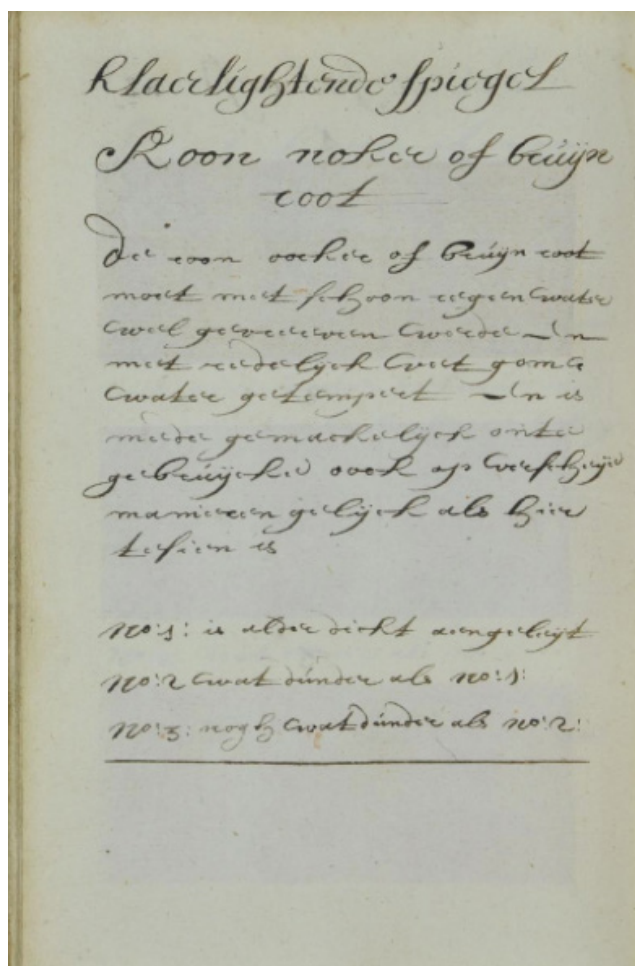 Klaerlightende Spiegel
Roon noker of bruÿn
root
De roon oocker of bruÿn root
moet met schoon regen water
wel gevreeven werde En
met redelyck vet gom
water getempert En is
mede gemackelyck omte
gebruÿcke oock op verscheÿe
manieren gelyck als hier
tesien is
No: 1: is alder dicht aengeleÿt
No: 2 wat dúnder als No: 1:
No: 3: nogh wat dúnder als No: 2: